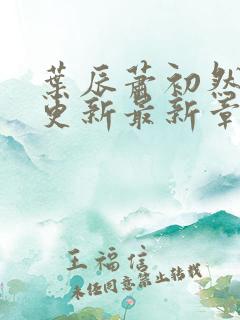 葉辰蕭初然
更新最新章
王福信
未经同意禁止转载